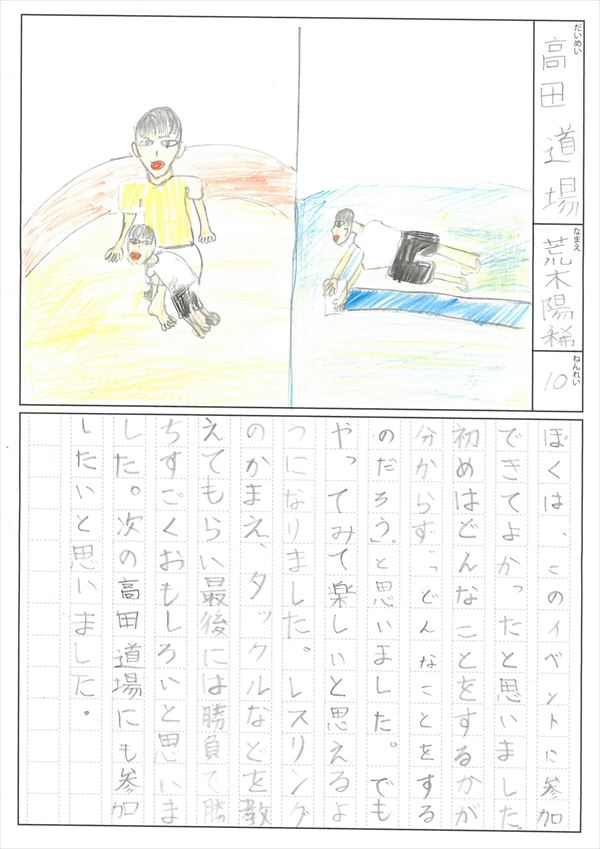 だいめい
高田道場
なまえ
荒木陽稀
ねんれい
10
ぼくは、このイベントに参加
できてよかったと思いました。
初めはどんなことをするかが
分からず「どんなことをする
のだろう」と思いました。でも
やってみて楽しいと思えるよ
うになりました。レスリング
のかまえ、タックルなどを教
えてもらい最後には勝負で勝
ちすごくおもしろいと思いま
した。次の高田道場にも参加
したいと思いました。